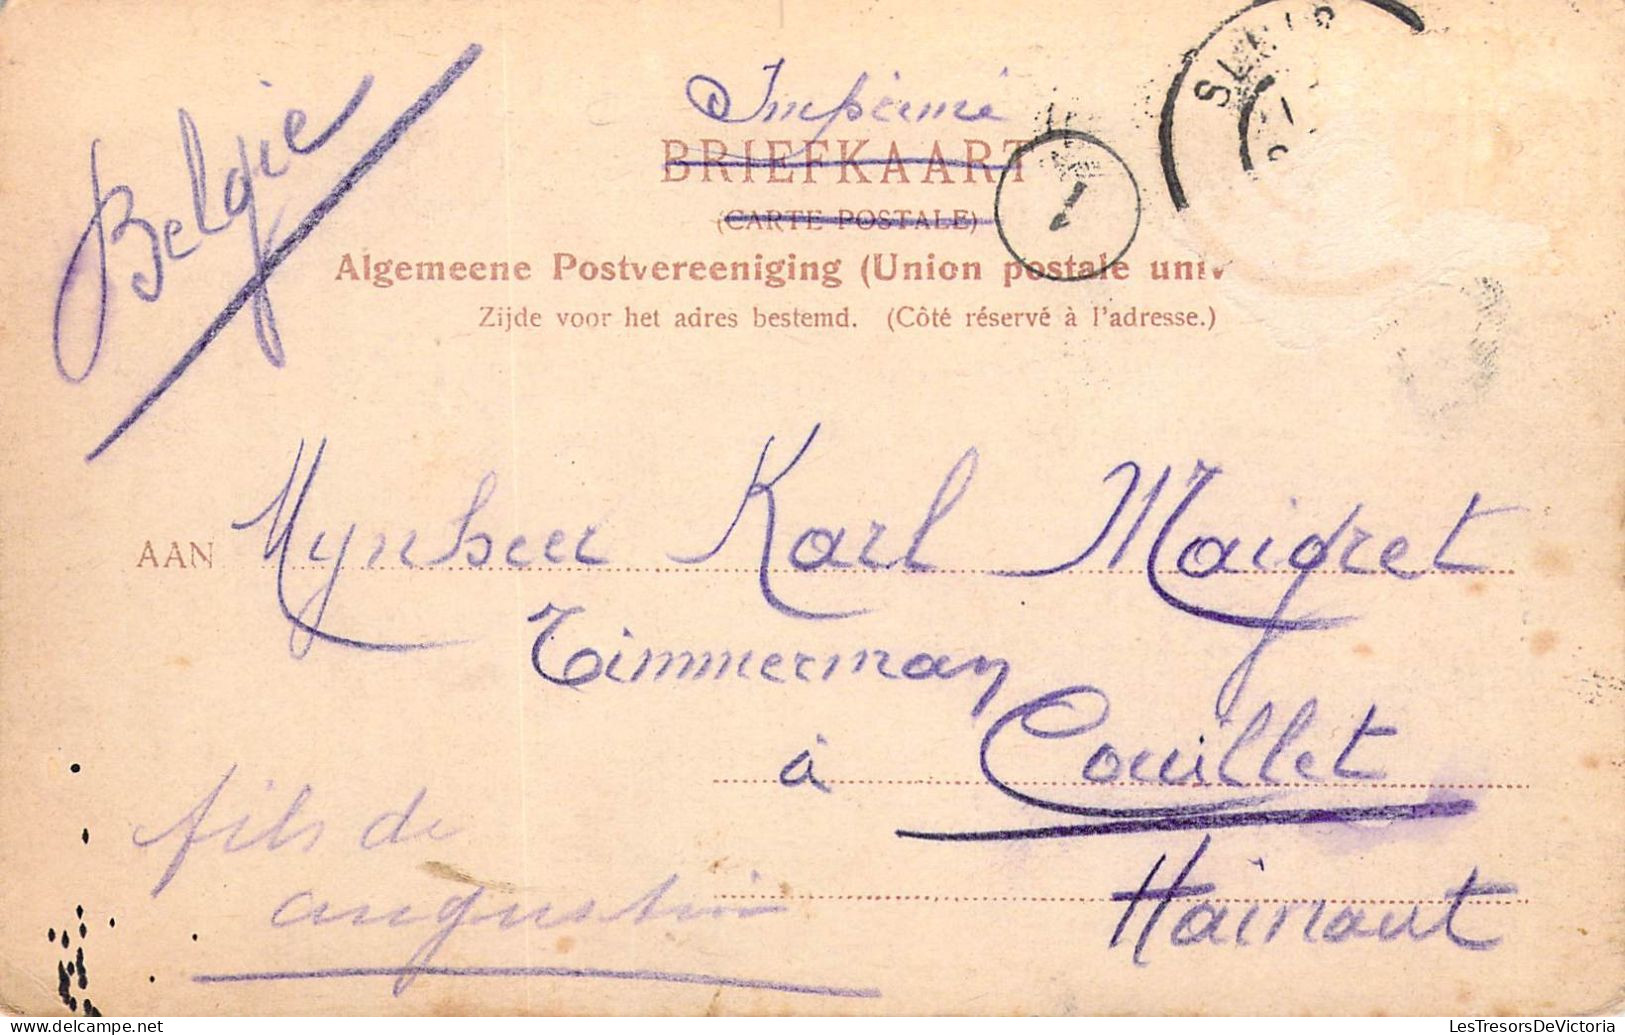 Belgie
Imprimé
BRIEFKAART
(CARTE POSTALE)
Algemeene Postvereeniging (Union postale univ
Zijde voor het adres bestemd. (Côté réservé à l'adresse.)
1
AAN Mynheer Karl Maigret
Timmerman
à Couillet
Hainaut
fils de
augustin
www.LesTresorsDeVictoria.com